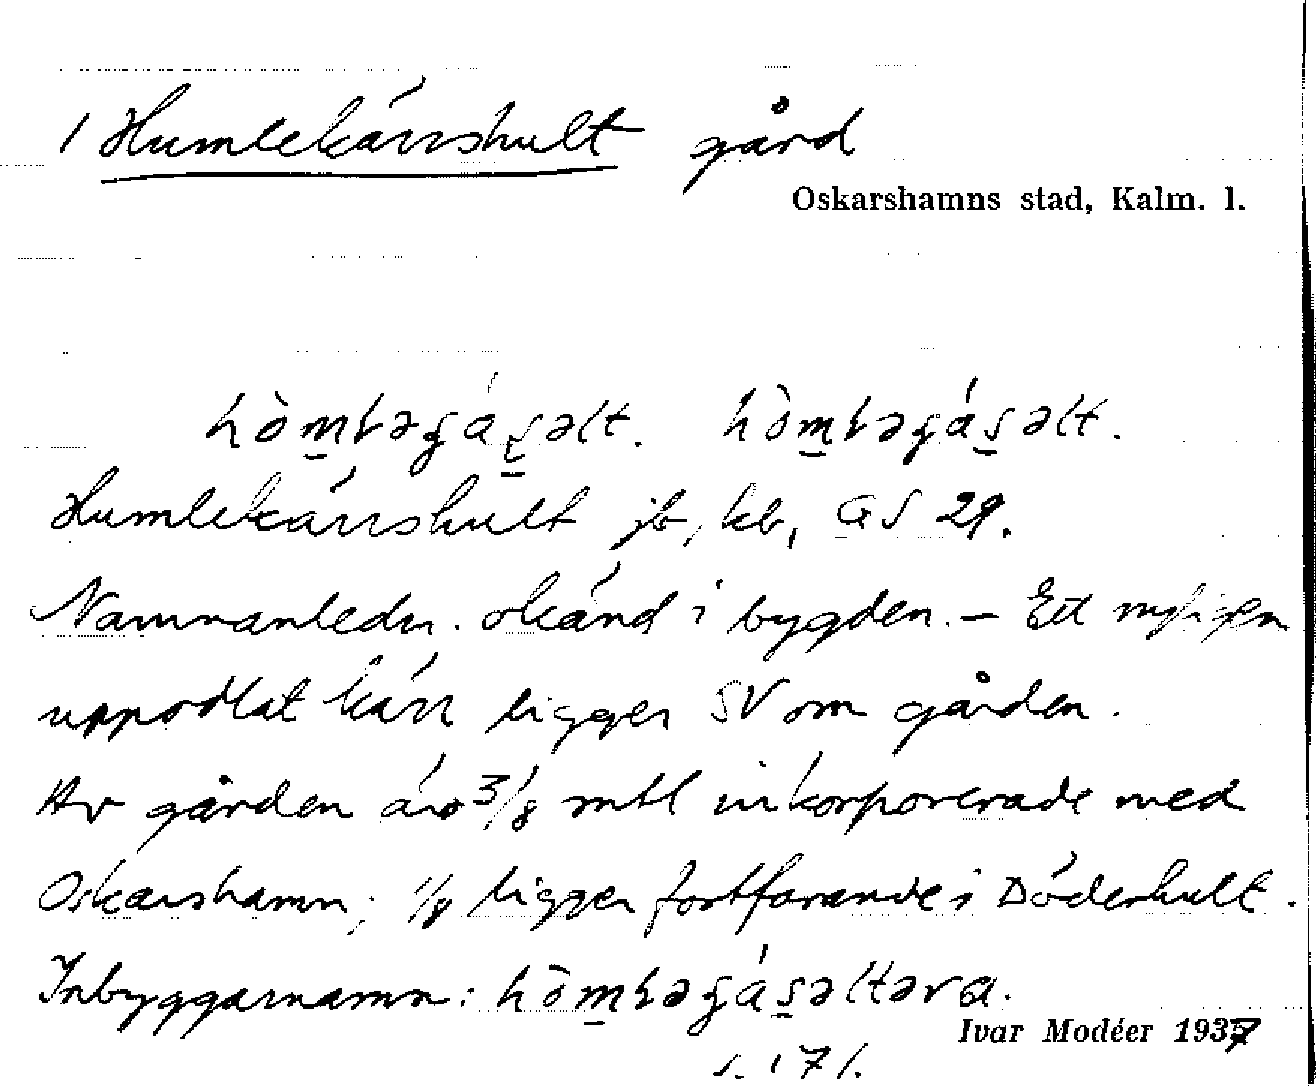 1 Humlekärrshult gård
Oskarshamns stad, Kalm. l.
Humlekärrshult jb, kb, GS 29.
Namnanledn. okänd i bygden. – Ett
uppodlat kärr ligger SV om gården.
Av gården äro 3/8 mtl inkorporerade med
Oskarshamn; 1/8 ligger fortfarande i Döderhult.
Inbyggarnamn:
Ivar Modéer 1937
s. 171.